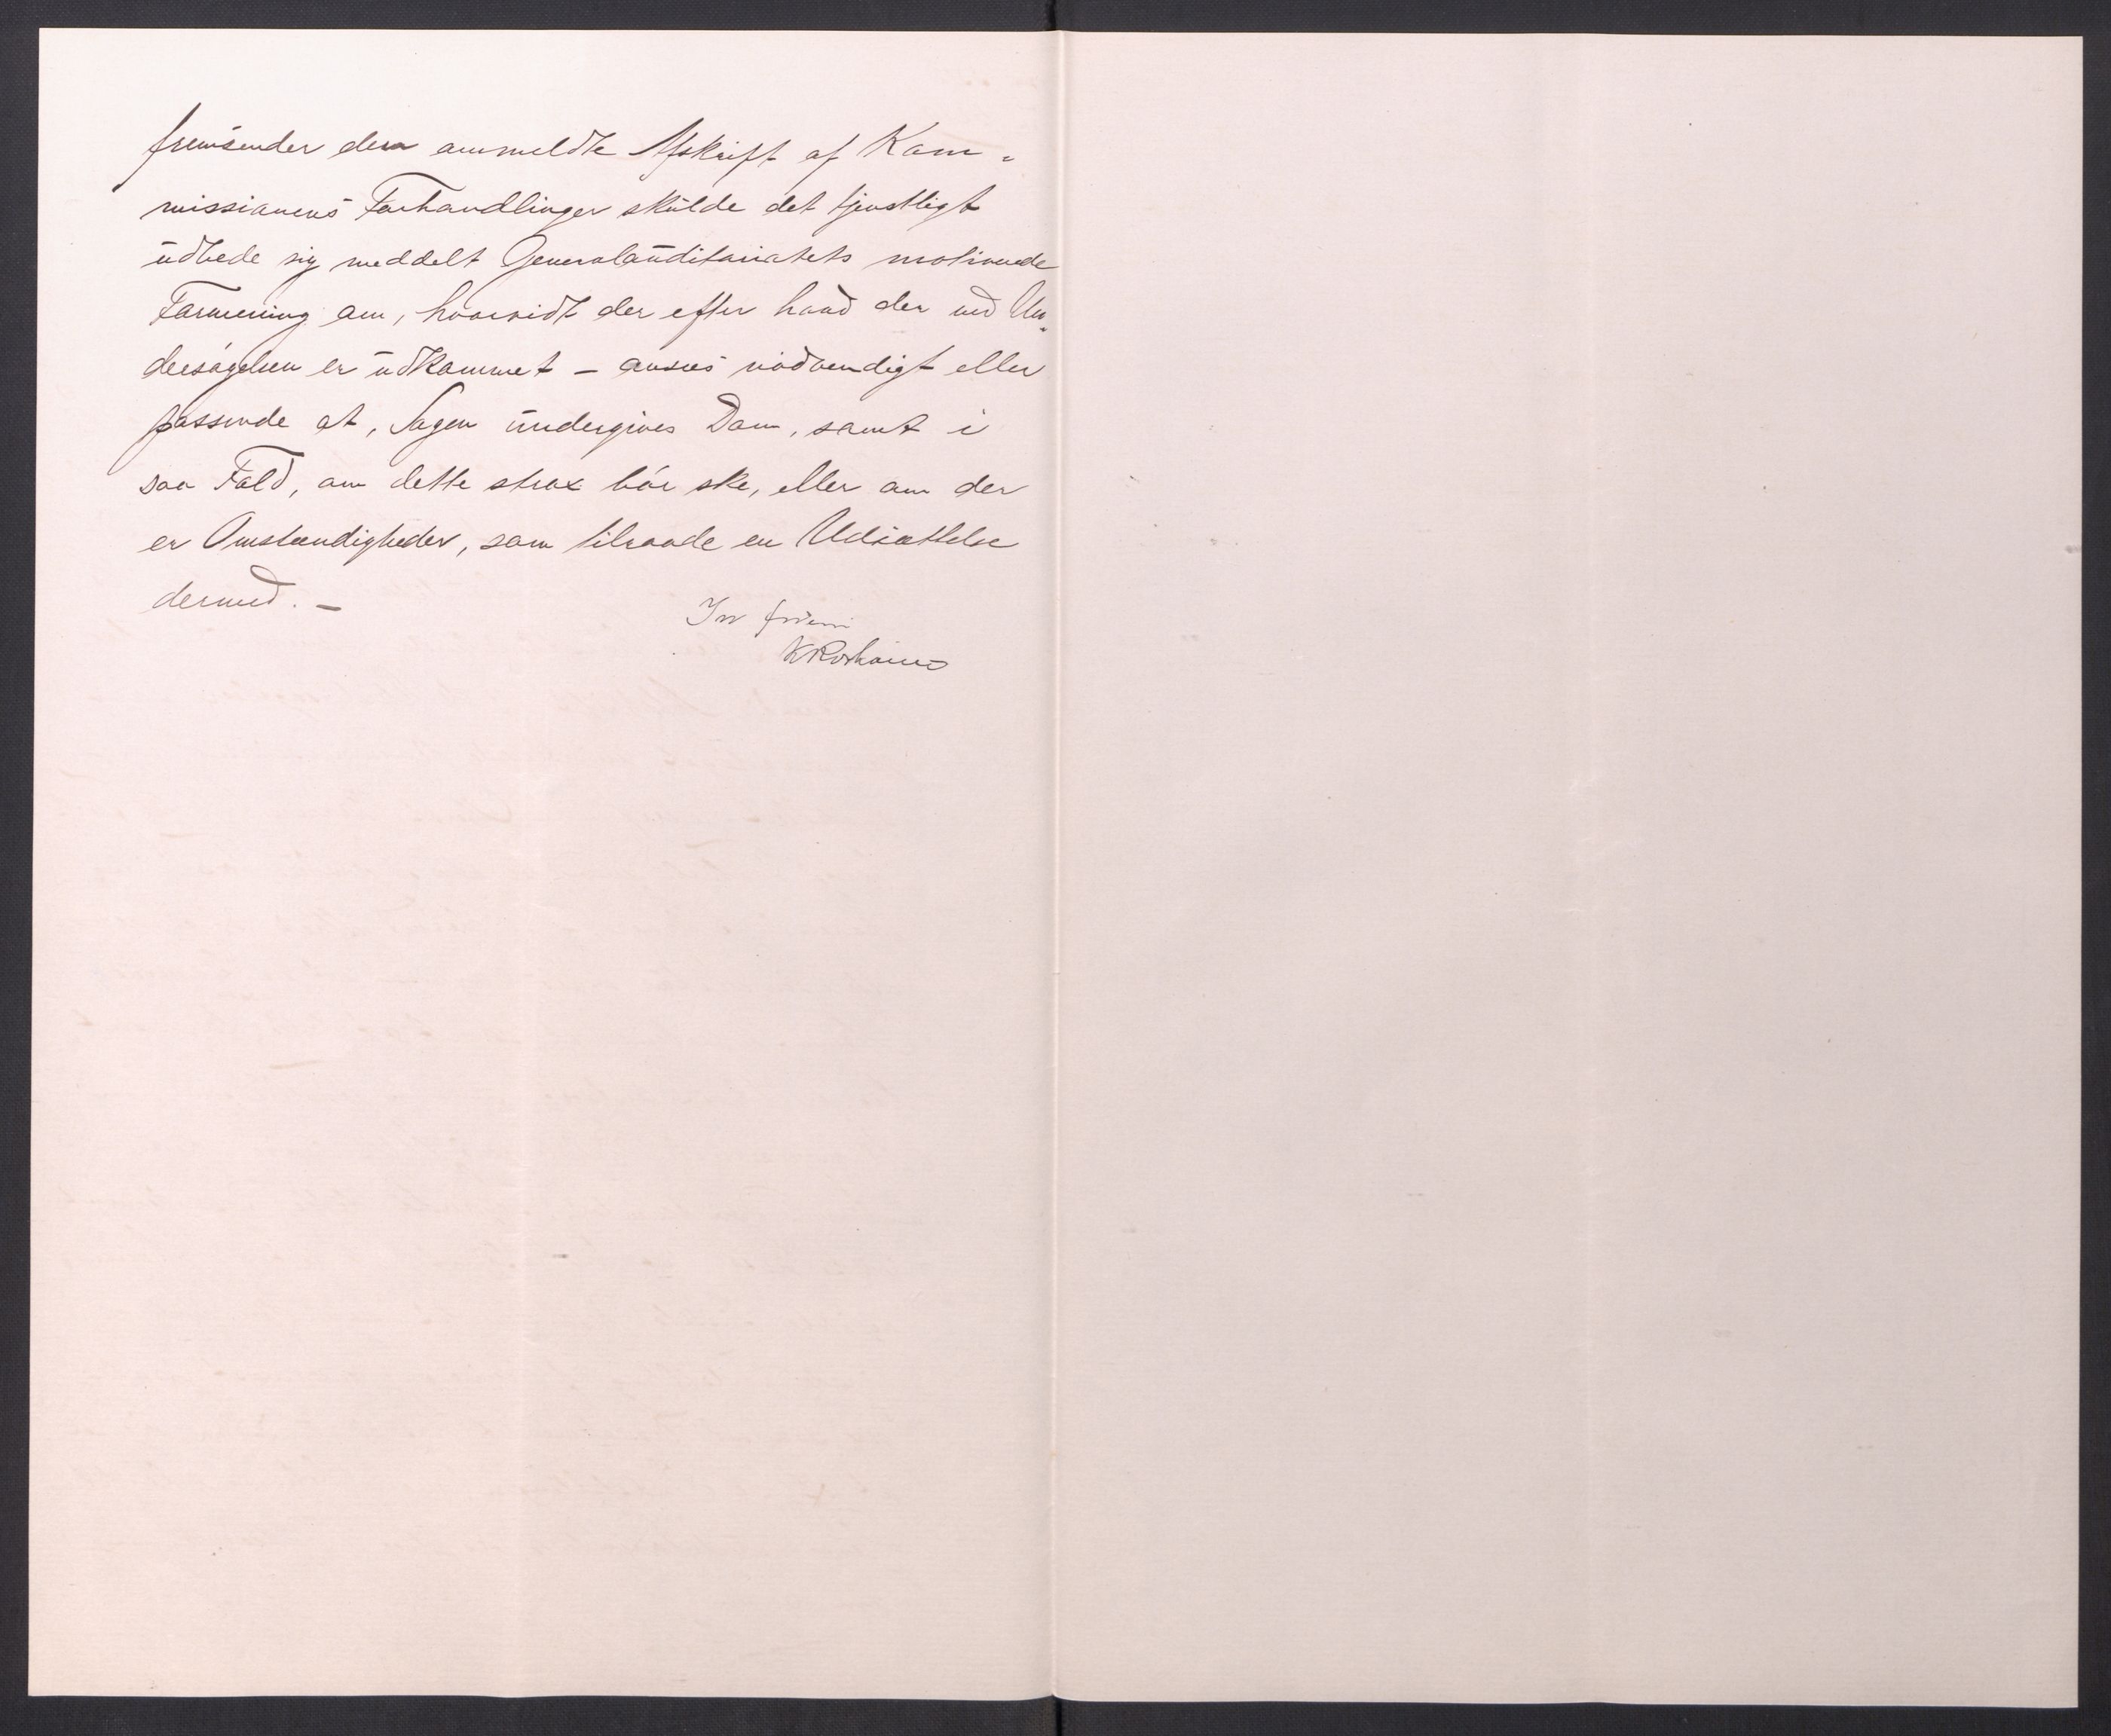 fremsender den anmeldte Afskrift af Kom-
missionens Forhandlinger skulde det tjenstligt
udbede sig meddelt Generalauditoriatets motiverede
Formening om, hvorvidt der efter hvad der ved Un-
dersøgelsen er udkommet - ansees nødvendigt eller
passende at, Sagen undergives Dom, samt i
saa Fald, om dette strax bør ske, eller om der
er Omstændigheder, som tilraade en Udsættelse
dermed. -